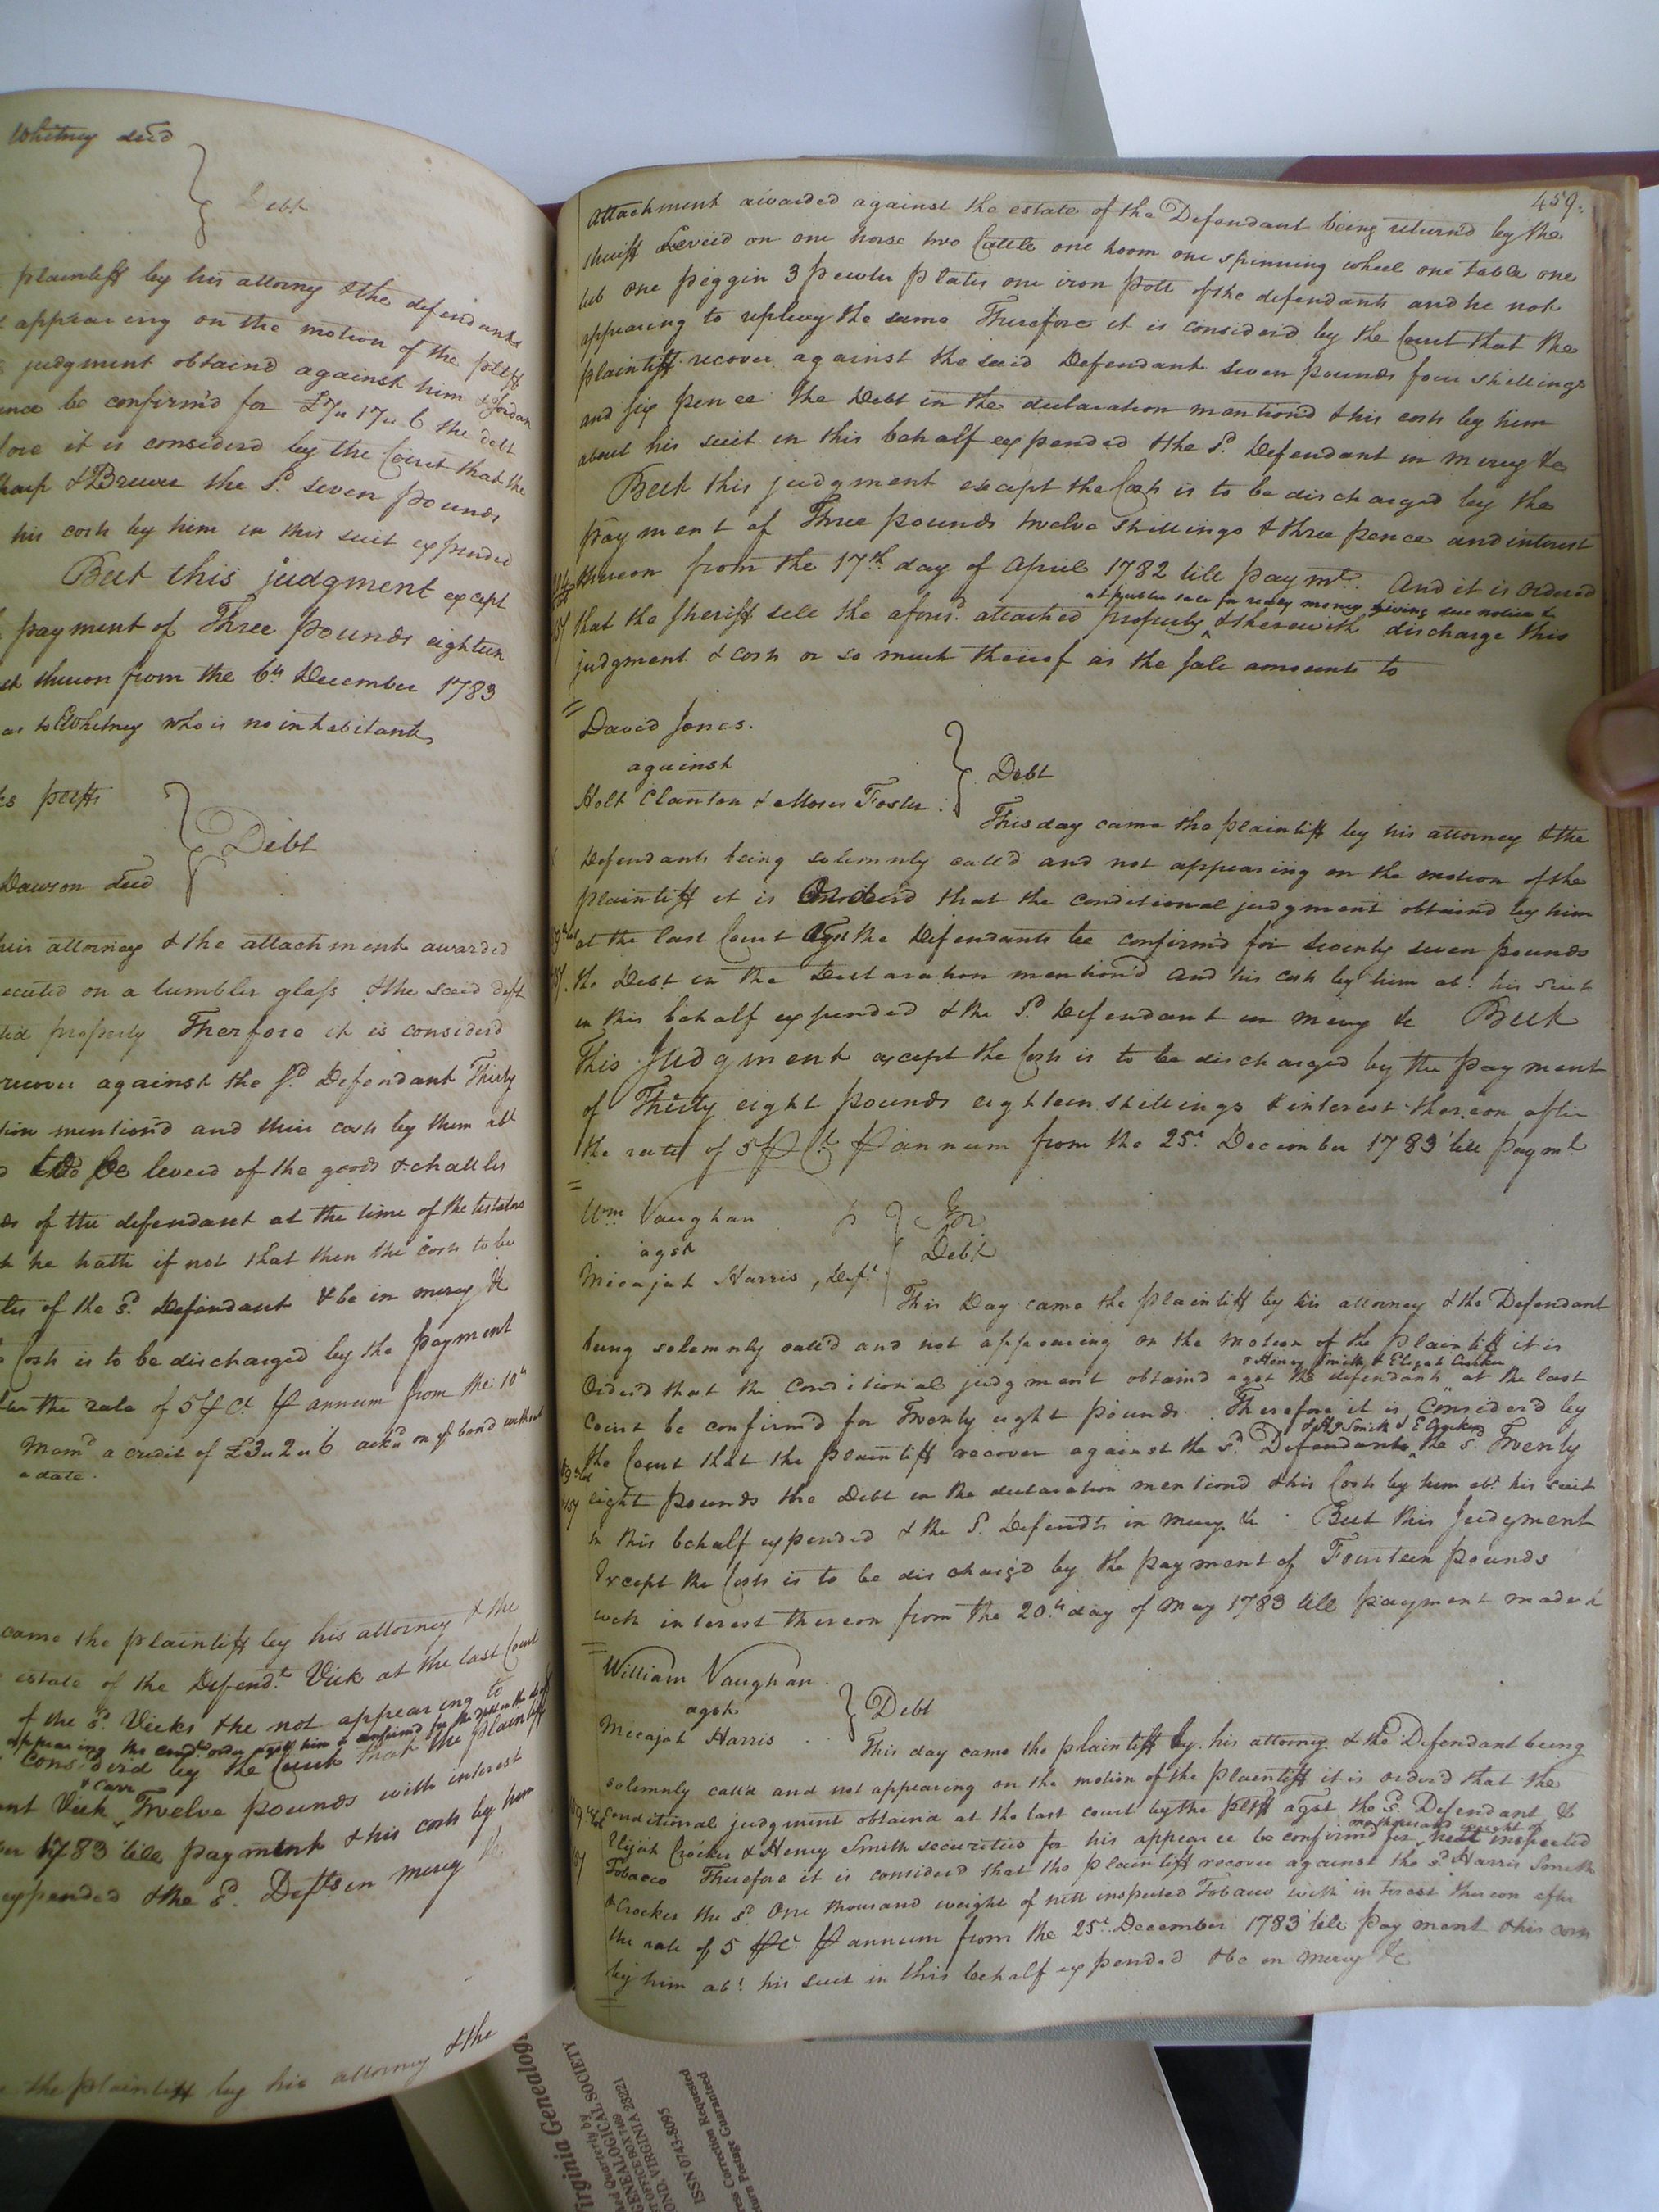 Whitney decd
Debt
plaintiff by his attorney & the defendants
appearing on the motion of the pltff
judgment obtaind against him & Jordan
be confirm'd for £7 " 17 " 6 the debt
it is considerd by the Court that the
& Brewer the sd. seven pounds
his costs by him in this suit expended
But this judgment except
payment of Three pounds eighteen
thereon from the 6th December 1783
as to Whitney who is no inhabitant
pltffs
Debt
Dawson decd
his attorney & the attachment awarded
on a tumbler glass & the said deft
property Therfore it is considerd
recover against the sd. Defendant Thirty
mentiond and their costs by them abt
to be levied of the goods & chattles
of the defendant at the time of the testators
he hath if not that then the costs to be
of the sd. Defendant & be in mercy &c
Costs is to be discharged by the payment
the rate of 5 P Ct. P annum from the 10th
Memd. a credit of £3 " 2 " 6 ackd on ye bond without
a date.
came the plaintiff by his attorney & the
estate of the Defendt. Vick at the last Court
of the sd. Vicks & he not appearing to
considerd by the Court that the plaintiff
& Carr
Vick Twelve pounds with interest
1783 till payment & his costs by him
expended & the sd. Defts in mercy &c
the plaintiff by his attorney & the
459.
Attachment awarded against the estate of the Defendant being returnd by the
sheriff Levied on one horse two Cattle one loom one spinning wheel one table one
tub one peggin 3 pewter plates one iron pott of the defendants and he not
appearing to replevy the same Therefore it is considerd by the Court that the
plaintiff recover against the said Defendant seven pounds four shillings
and six pence the Debt in the declaration mentiond & his costs by him
about his suit in this behalf expended & the sd. Defendant in mercy &c
But this judgment except the Costs is to be discharged by the
payment of Three pounds twelve shillings & three pence and interest
thereon from the 17th. day of April 1782 till paymt. And it is Ordered
at public sale for ready money giving due notice &
that the sheriff sell the aforesd. attached property & therewith discharge this
judgment & costs or so much thereof as the sale amounts to
David Jones.
against
Holt Clanton & Moses Foster.
Debt
This day came the plaintiff by his attorney & the
Defendants being solemnly call'd and not appearing on the motion of the
plaintiff it is Orderd that the conditional judgment obtaind by him
at the last Court agst the Defendants be confirm'd for seventy seven pounds
the Debt in the Declaration mention'd and his costs by him abt. his suit
in this behalf expended & the sd. Defendant in mercy &c But
This Judgment except the Costs is to be discharged by the payment
of Thirty eight pounds eighteen shillings & interest thereon after
the rate of 5 P Ct. P annum from the 25t. December 1783 till paymt.
Wm Vaughan
agst
Micajah Harris, Deft.
In
Debt
This Day came the plaintiff by his attorney & the Defendant
being solemnly call'd and not appearing on the motion of the plaintiff it is
& Henry Smith & Elijah Crocker
Orderd that the Conditional judgment obtaind agst the defendants at the last
Court be confirm'd for Twenty eight pounds. Therefore it is Considerd by
& H Smith & E Crocker
the Court that the plaintiff recover against the sd. Defendants the sd. Twenty
eight pounds the Debt in the declaration mentiond & his Costs by him abt his suit
in this behalf expended & the sd. Defendts in mercy &c. But this Judgment
Except the Costs is to be discharg'd by the payment of Fourteen pounds
with interest thereon from the 20th day of May 1783 till payment made &
William Vaughan.
agst
Micajah Harris
Debt
This day came the plaintiff by his attorney & the Defendant being
solemnly call'd and not appearing on the motion of the plaintiff it is orderd that the
Conditional judgment obtaind at the last court by the pltff agst the sd. Defendant &
one thousand weight of
Elijah Crocker & Henry Smith securities for his appearce be confirmd for nett inspected
Tobacco Therefore it is considerd that the plaintiff recover against the sd. Harris Smith
& Crocker the sd. One thousand weight of nett inspected Tobacco with interest thereon after
the rate of 5 P Ct. P annum from the 25t. December 1783 till payment & his costs
by him abt. his suit in this behalf expended & be in mercy &c
Virginia Genealogi
Quarterly by
GENEALOGICAL SOCIETY
OFFICE BOX 7469
OND, VIRGINIA 23221
ISSN 0743-8095
ress Correction Requested
turn Postage Guaranteed